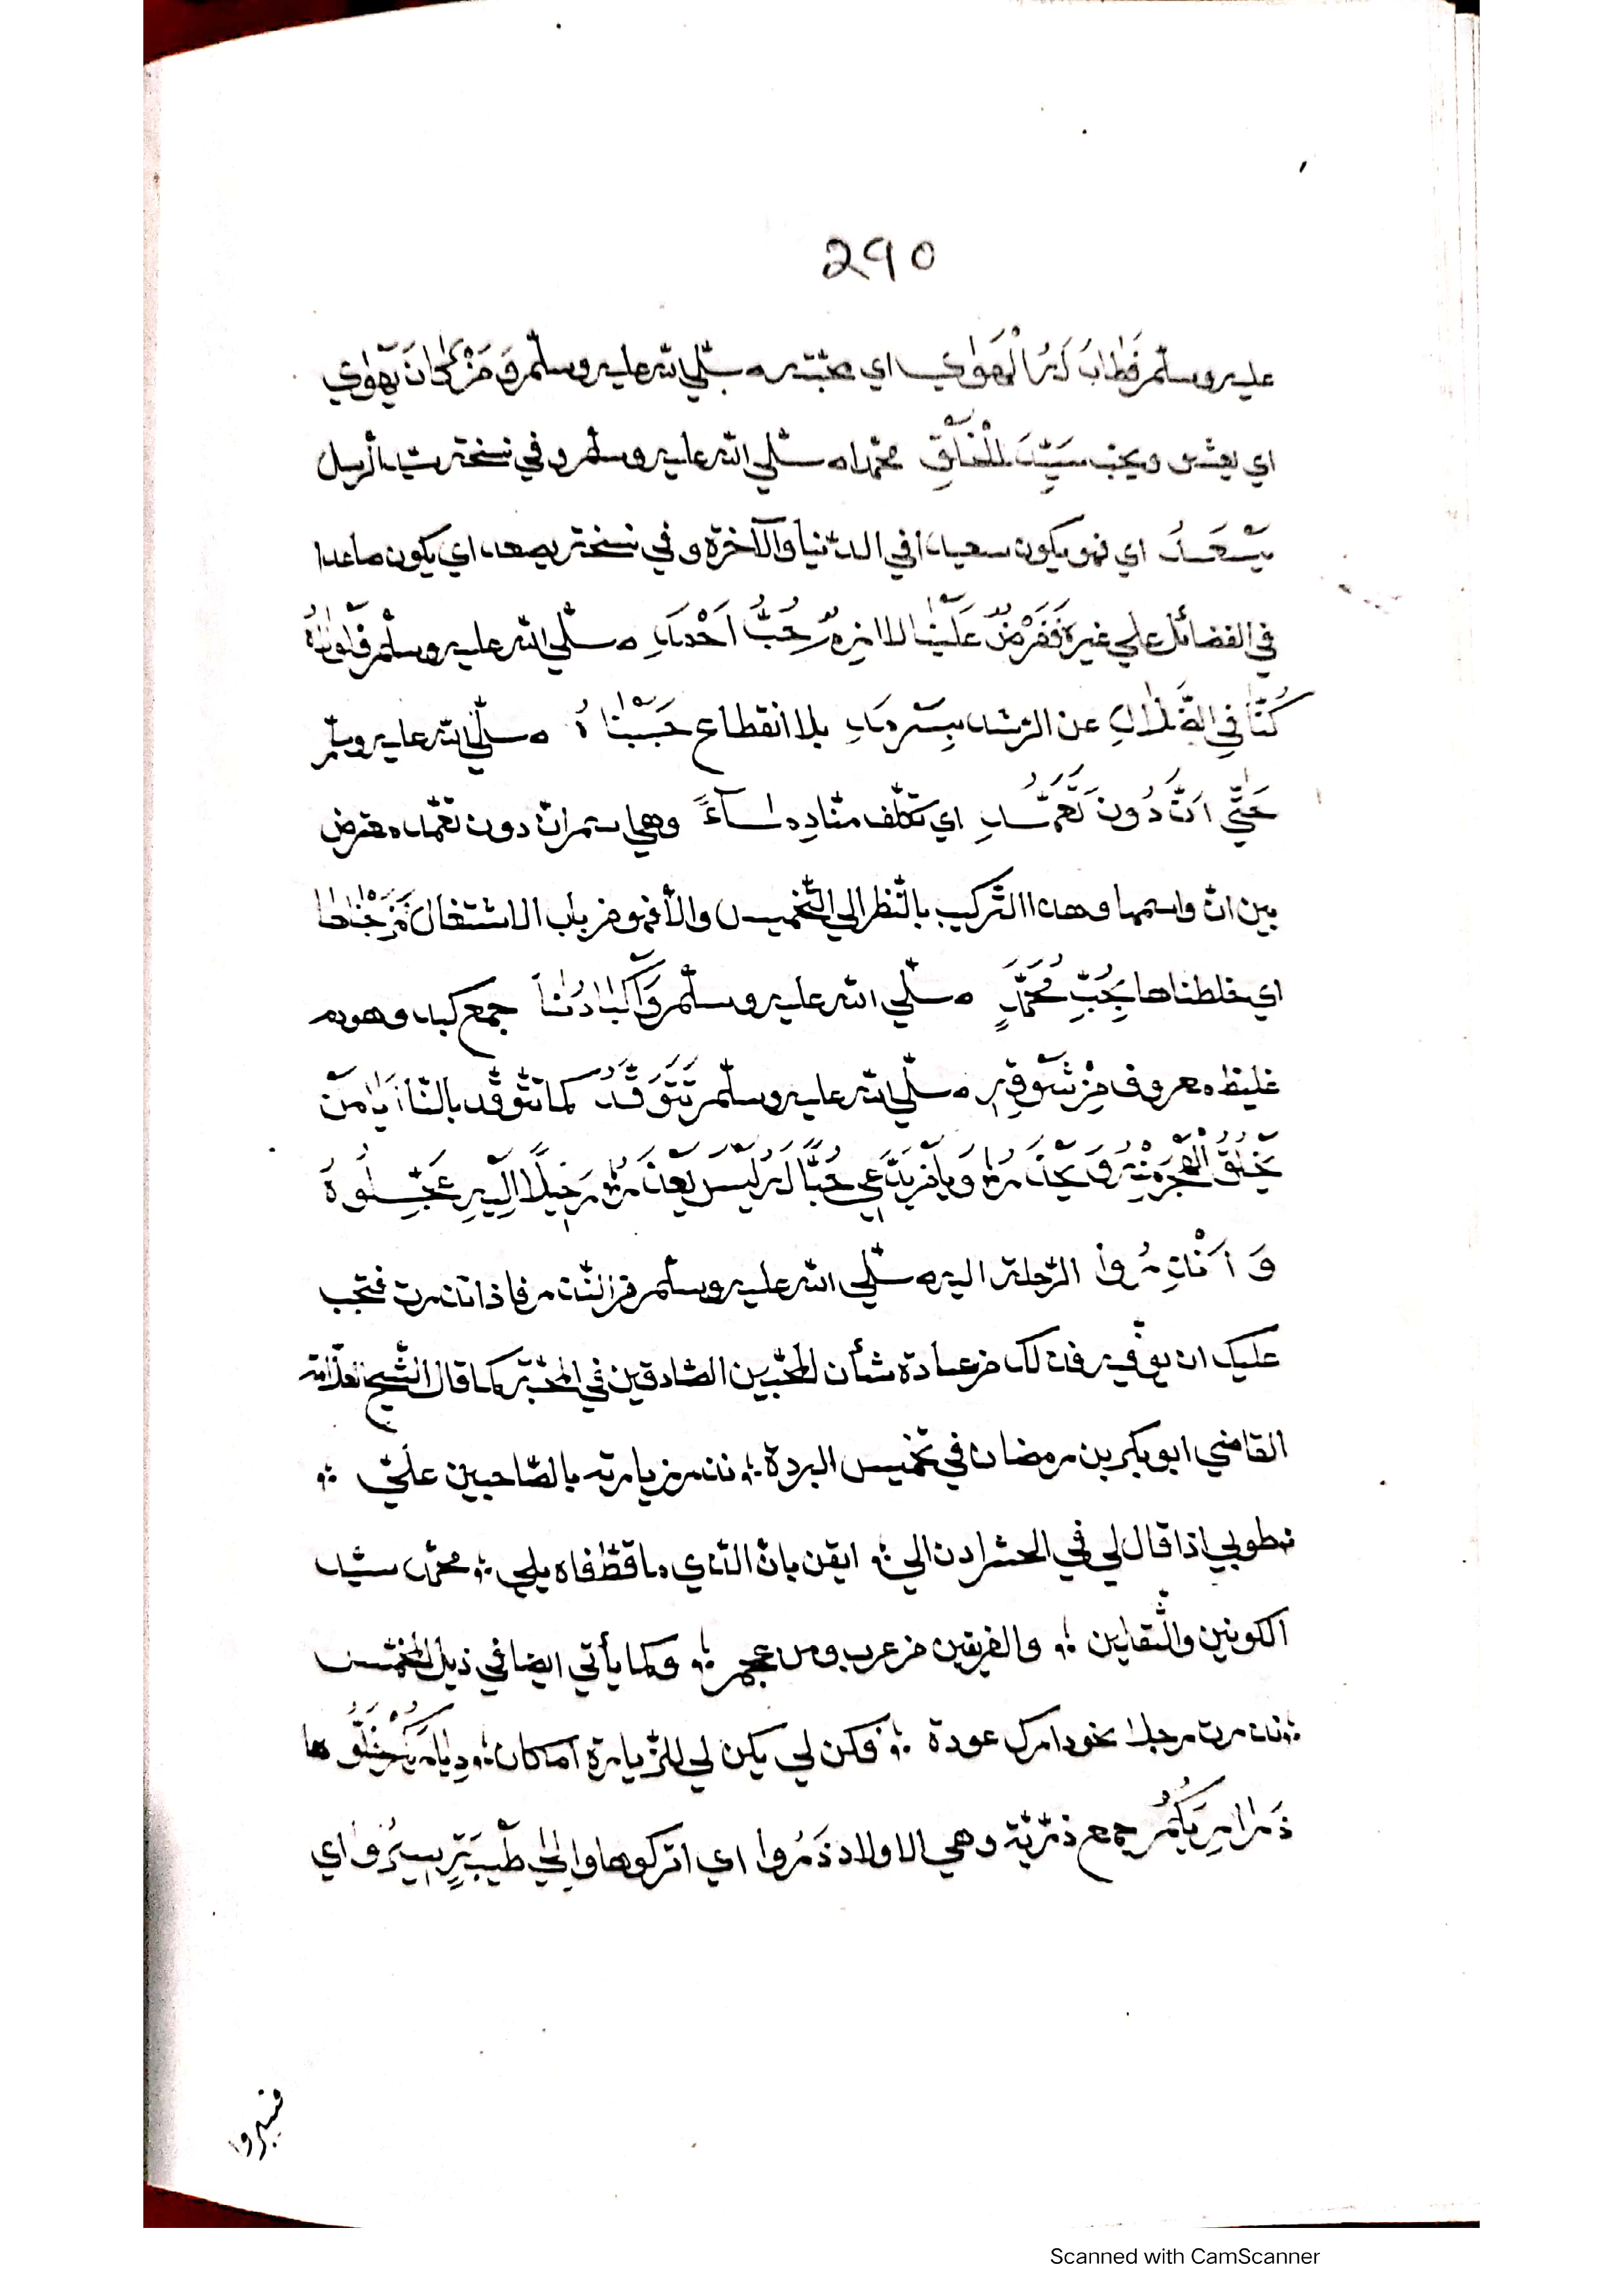 290
عليه وسلّم فَطَابَ لَهُ الْهَوٰي اي محبّته صلّي الله عليه وسلّم وَمَنْ كَانَ يَهْوٰي
اي يعشق ويحب سَيِّدَ الْخَلْقِ محمّدا صلّي الله عليه وسلّم وفي نسخة سيد الرسل
يَسْعَدُ اي فهو يكون سعيدا في الدّنيا والآخرة وفي نسخة يصعد اي يكون صاعدا
في الفضائل علي غيره فَفَرْضٌ عَلَيْنَا لازم حُبُّ اَحْمَدَ صلّي الله عليه وسلّم
كُنَّا فِي الضَّلَالِ عن الرّشد بِسَرْمَدِ بلا انقطاع صلّي الله عليه وسلّم
حَتّٰي اَنَّ دُونَ تَعَمُّدِ اي تكلّف منّا دِمَاءً وهي اسم انّ دون تعمّد معترض
بين انّ واسمها وهذا التّركيب بالنّظر الي التّخميس والّا فهو من باب الاشتغال مَزَجْنَاهَا
اي خلطناها بِحُبِّ مُحَمَّدٍ صلّي الله عليه وسلّم وَاَكْبَادُنَا جمع كبد وهو دم
غليظ معروف مِنْ شَوْقِهِ صلّي الله عليه وسلّم تَتَوَقَّدُ كما تتوقّد بالنّار اَيَا مَنْ
حُبًّا لَهُ لَيْسَ يَعْذُرُ رَحِيلًا اِلَيْهِ عَجِّلُوهُ
وَ اَنْذِرُوا الرّحلة اليه صلّي الله عليه وسلّم من النّذر فاذا نذرت فتجب
عليك ان توفيه فذلك من عادة شأن المحبّين الصّادقين في المحبّة كما قال الشّيخ العلّامة
القاضي ابو بكر بن رمضان في تخميس البردة ؞ نذر زيارته بالصّاحبين علي ؞
فطوبي اذا قال لي في الحشر ادن الي ؞ ايقن بانّ الّذي ما قطّ فاه بلي ؞ محمّد سيّد
الكونين والثّقلين ؞ والفريقين من عرب ومن عجم ؞ وكما يأتي ايضا في ذيل المخمّس
؞ نذرت رحلا نحو دارك عودة ؞ فكن لي يكن لي للزّيارة امكان ؞ دِيَارَكُمْ خَلُّوهَا
ذَرَارِيَكُمُ جمع ذرّيّة وهي الاولاد ذَرُوا اي اتركوها وَاِلٰي طَيْبَةٍ سِيرُوا اي
فسيروا
Scanned with CamScanner